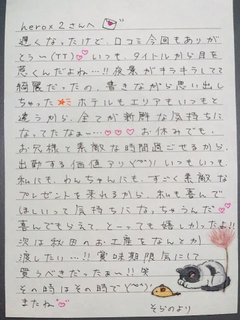 herox2さんへ
遅くなったけど、口コミ今回もありが
とう〜(TT)♡ いつも、タイトルから目を
惹くんだよね…!! 夜景がキラキラしてて
綺麗だったの、書きながら思い出し
ちゃった ホテルもエリアもいつもと
違うから、全てが新鮮な気持ちに
なってたなぁ〜♡♡♡ お休みでも、
お兄様と素敵な時間過ごせるから、
出勤する価値アリ いつもいつも、
私にも、わんちゃんにも、すごく素敵な
プレゼントを来れるから、私も喜んで
ほしいって気持ちになっちゃうんだ♡
喜んでもらえて、と〜っても嬉しかったよ!!
次は秋田のお土産をなんとか
渡したい…!! 賞味期限気にして
買うべきだったぁ〜!!
その時はその時で
またね
そらのより